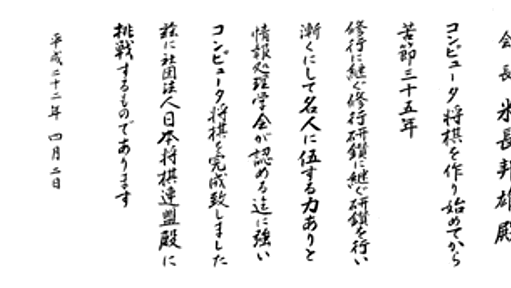 会長 米長邦雄殿
コンピュータ将棋を作り始めてから
苦節三十五年
修行に継ぐ修行研鑽に継ぐ研鑽を行い
漸くにして名人に伍する力ありと
情報処理学会が認める迄に強い
コンピュータ将棋を完成致しました
茲に社団法人日本将棋連盟殿に
挑戦するものであります
平成二十二年 四月二日